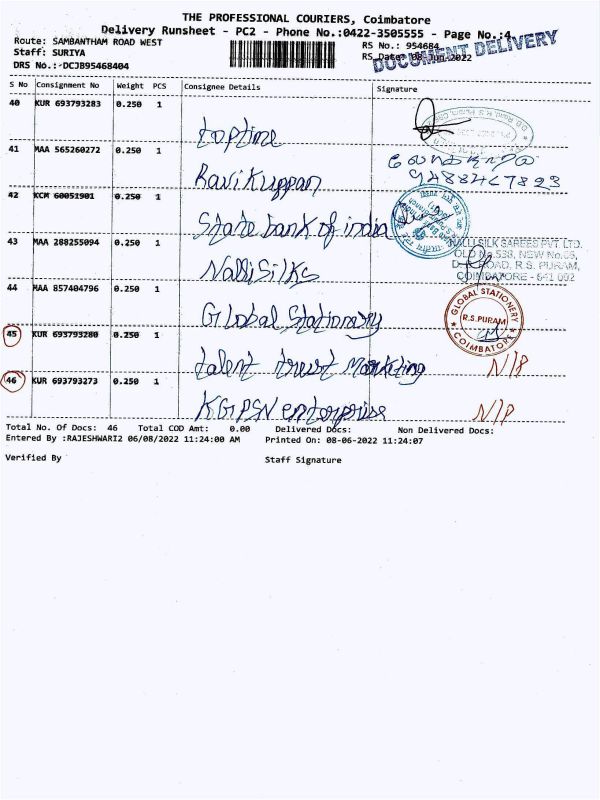 THE PROFESSIONAL COURIERS, Coimbatore
Delivery Runsheet - PC2 - Phone No.:0422-3505555 - Page No.:4
Route: SAMBANTHAM ROAD WEST RS No.: 954684
Staff: SURIYA RS Date: 08-Jun-2022
DOCUMENT DELIVERY
DRS No.:-DCJB95468404
S No Consignment No Weight PCS Consignee Details Signature
40 KUR 693793283 0.250 1
toptime
41 MAA 565260272 0.250 1
9488467823
Ravi Kuppan
42 KCM 60051901 0.250 1
State bank of india
43 MAA 288255094 0.250 1
NALLI SILK SAREES PVT. LTD.
OLD No.538, NEW No.
ROAD, R.S. PURAM,
COIMBATORE - 641 002
Nalli Silks
44 MAA 857404796 0.250 1
GLOBAL STATIONERY
R.S.PURAM
COIMBATORE
Global Stationary
45 KUR 693793280 0.250 1
talent trust Marketing N/P
46 KUR 693793273 0.250 1
KGPSN enterprise N/P
Total No. Of Docs: 46 Total COD Amt: 0.00 Delivered Docs: Non Delivered Docs:
Entered By :RAJESHWARI2 06/08/2022 11:24:00 AM Printed On: 08-06-2022 11:24:07
Verified By Staff Signature